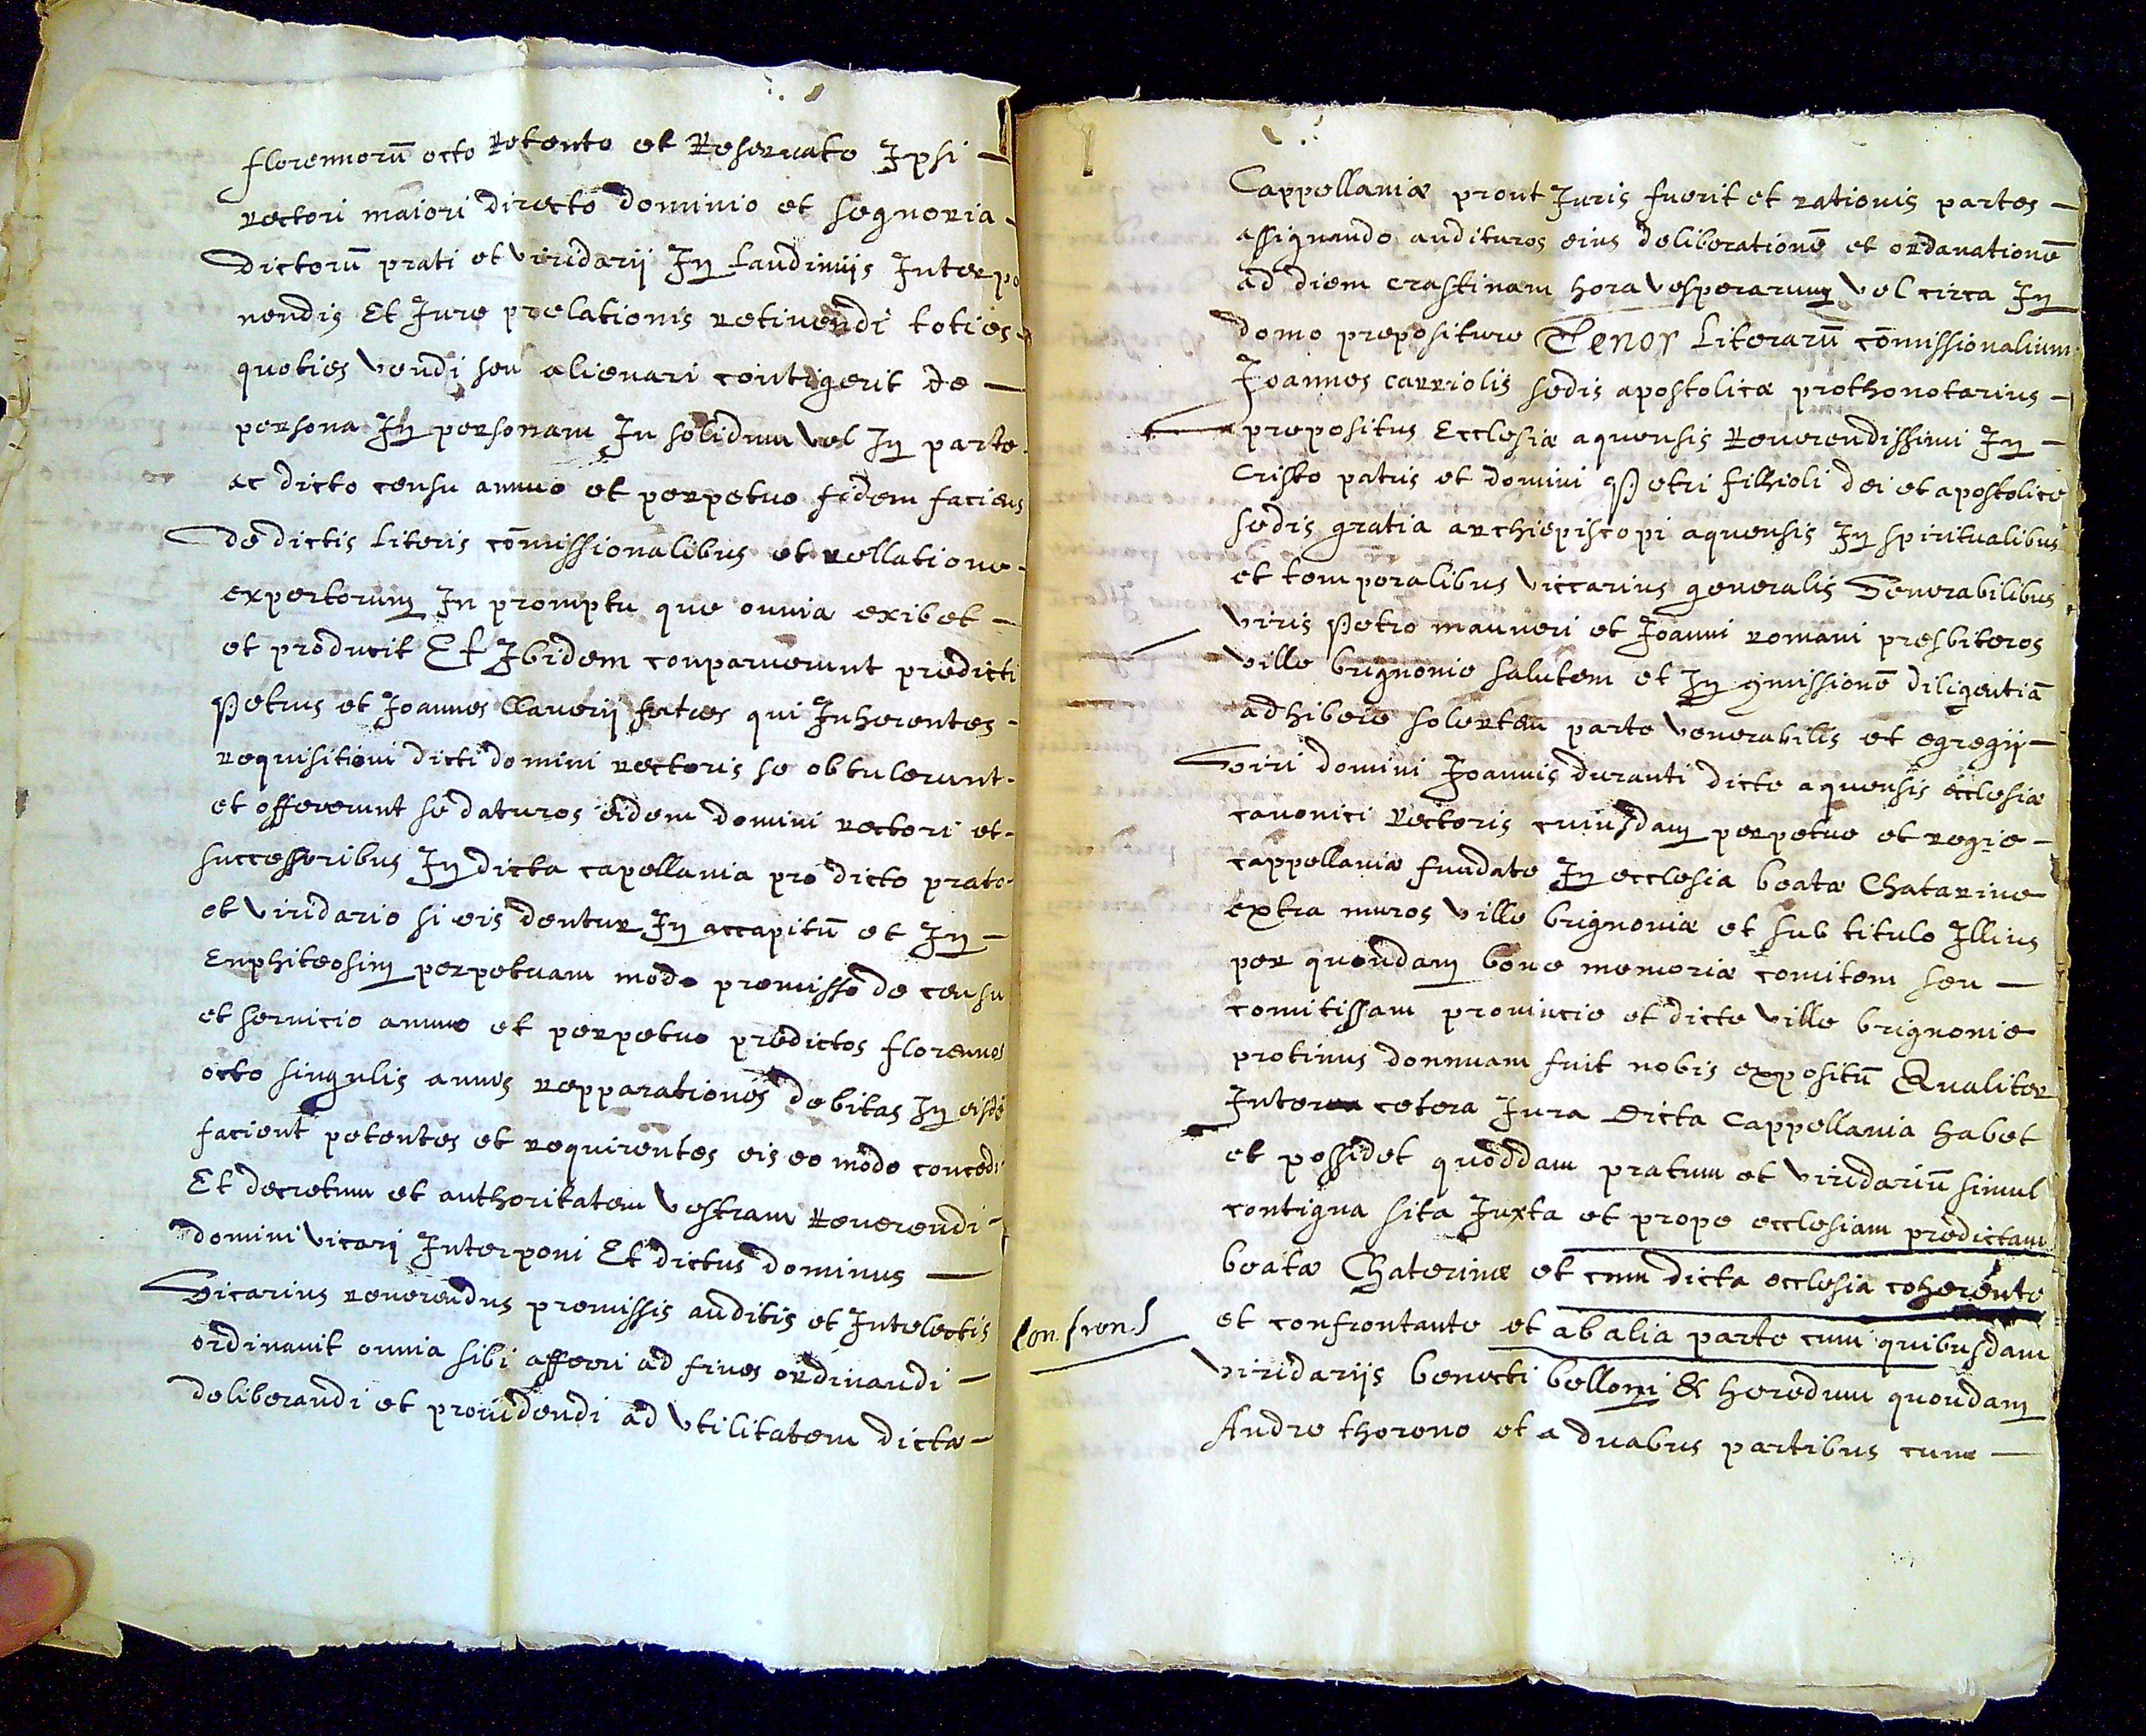 florennorū octo Retento et Reservato Ipsi –
rectori maiori directo dominio et segnoria –
dictorū prati et viridarij In laudimijs Interpo
nendis Et Jure prelationis retinendi toties –
quoties vendi seu alienari contigerit de –
persona In personam In solidum vel In parte
ac dicto censu annuo et perpetuo fidem faciens
de dictis literis cōmissionalibus et rellatione –
expertorum In promptu que omnia exibet –
et producit Et Ibidem conparuerunt predicti
Petrus et Joannes llauerij fratres qui Inherentes –
requisitioni dicti domini rectoris se obtulerunt –
et offererunt se daturos eidem domini rectori et –
successoribus In dicta capellania pro dicto prato –
et viridario si eis dentur In accapitū et In –
Enphiteosim perpetuam modo premisso de censu
et seruicio annuo et perpetuo predictos florennos
octo singulis annos repparationes debitas In eisdē
facient petentes et requirentes eis eo modo concedi
Et decretum et authoritatem vestram Reuerendi –
domini vicarij Interponi Et dictus dominus –
Vicarius reuerendus premissis auditis et Intelectis
ordinauit omnia sibi afferri ad fines ordinandi –
deliberandi et prouidendi ad vtilitatem dictæ –
Cappellaniæ prout Juris fuerit et rationis partes –
assignando audituros eius deliberationē et ordanationē
ad diem crastinam hora vesperarum vel circa In
domo prepositure Tenor Literarū cōmissionalium
Joannes carriolis sedis apostolicæ prothonotarius –
prepositus Ecclesiæ aquensis Reuerendissimi In –
Cristo patris et domini Petri fillioli dei et apostolice
sedis gratia archiepiscopi aquensis In spiritualibus
et temporalibus viccarius generalis Venerabilibus
viris Petro mauneri et Joanni romani presbiteros
ville brignonie salutem et In cōmissionē diligentiā
adhibere solertem parte venerabilis et egregij –
Viri domini Joannis duranti dicte aquensis ecclesiæ
canonici Rectoris cuiusdam perpetue et regie –
cappellaniæ fundate In ecclesia beatæ Chatarine
extra muros ville brignoniæ et sub titulo Illius
per quondam bone memoriæ comitem seu –
comitissam prouincie et dicte ville brignonie
protinus donnuam fuit nobis expositū Qualiter
Inter cetera Jura dicta Cappellania habet
et possidet quoddam pratum et viridariū simul
contigua sita Juxta et prope ecclesiam predictam
beatæ Chaterinæ et cum dicta ecclesia coherente
con fron.s
et confrontante et ab alia parte cum quibusdam
viridarijs benecti belloni & heredum quondam
Andre thorene et a duabus partibus cum –